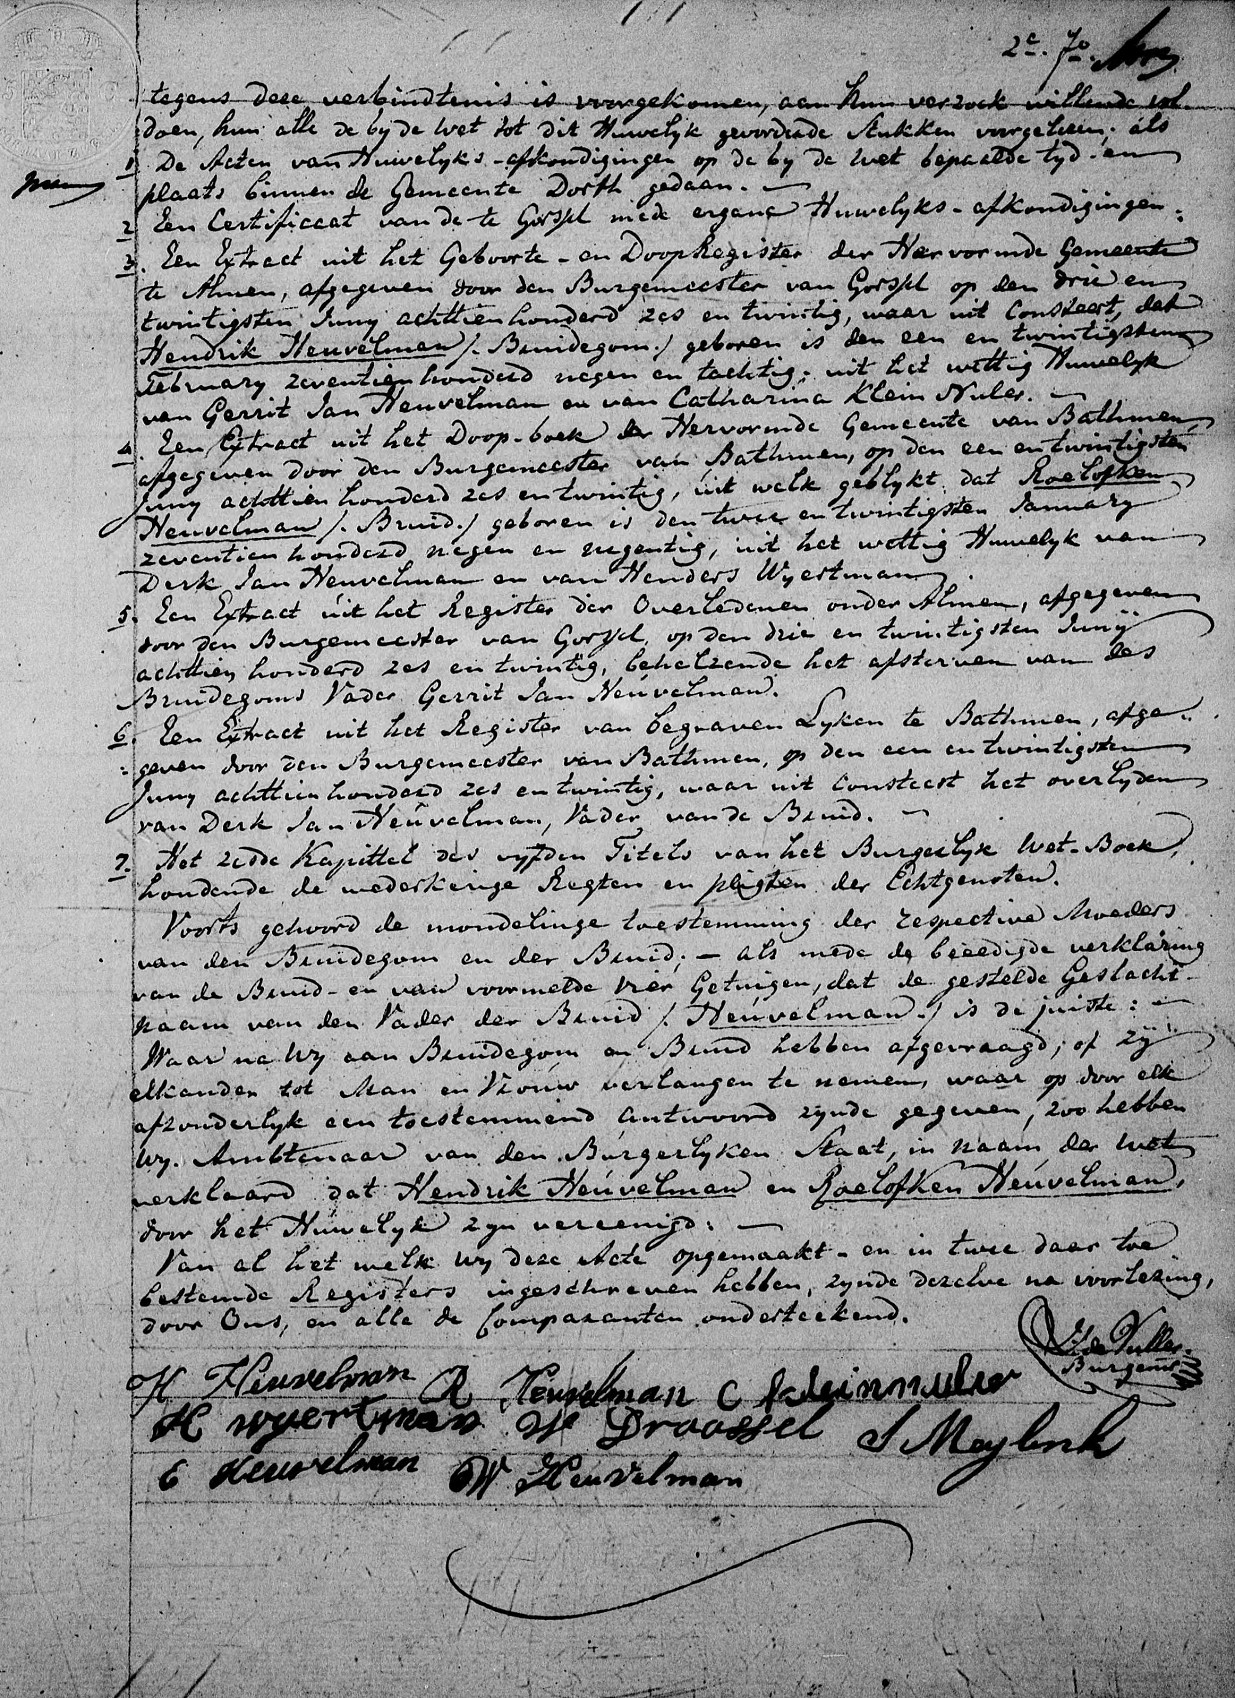 2e. 7o.
tegens deze verbindtenis is voorgekomen, aan hun verzoek willende vol-
doen, hun alle de by de Wet tot dit Huwelyk gevorderde Stukken voorgelezen; als
1. De Acten van Huwelyks-afkondigingen op de by de Wet bepaalde tyd- en
plaats binnen de Gemeente Dorth gedaan. —
2 Een Certificaat van de te Gorssel mede ergane Huwelyks-afkondigingen.
3. Een Extract uit het Geboorte- en DoopRegister der Hervormde Gemeente
te Almen, afgegeven door den Burgemeester van Gorssel op den drie en
twintigsten Juny achttienhonderd zes en twintig, waar uit Consteert, dat
Hendrik Heuvelman /. Bruidegom ./ geboren is den een en twintigsten
February zeventienhonderd negen en tachtig; uit het wettig Huwelyk
van Gerrit Jan Heuvelman en van Catharina Klein Nuler. —
4. Een Extract uit het Doop-boek der Hervormde Gemeente van Bathmen,
afgegeven door den Burgemeester van Bathmen, op den een en twintigsten
Juny achttien honderd zes en twintig, uit welk geblykt dat Roelofken
Heuvelman /. Bruid ./ geboren is den twee en twintigsten January
zeventien honderd negen en negentig, uit het wettig Huwelyk van
Derk Jan Heuvelman en van Henders Wyertman.
5. Een Extract uit het Register der Overledenen onder Almen, afgegeven
door den Burgemeester van Gorssel, op den drie en twintigsten Juny
achttien honderd zes en twintig, behelzende het afsterven van des
Bruidegoms Vader Gerrit Jan Heuvelman.
6. Een Extract uit het Register van begraven Lyken te Bathmen, afge-
geven door den Burgemeester van Bathmen, op den een en twintigsten
Juny achttienhonderd zes en twintig, waar uit Consteert het overlyden
van Derk Jan Heuvelman, Vader van de Bruid. —
7. Het zesde Kapittel des vyfden Titels van het Burgerlyk Wet-Boek,
houdende de wederkerige Regten en pligten der Echtgenoten.
Voorts gehoord de mondelinge toestemming der respective Moeders
van den Bruidegom en der Bruid; — als mede de beëedigde verklaring
van de Bruid- en van voormelde vier Getuigen, dat de gestelde Geslacht-
naam van den Vader der Bruid /. Heuvelman ./ is de juiste: —
Waar na Wy aan Bruidegom en Bruid hebben afgevraagd; of zy
elkander tot Man en Vrouw verlangen te nemen, waar op door elk
afzonderlyk een toestemmend antwoord zynde gegeven, zoo hebben
Wy. Ambtenaar van den Burgerlyken Staat, in naam der Wet
verklaard dat Hendrik Heuvelman en Roelofken Heuvelman,
door het Huwelyk zyn vereenigd: —
Van al het welk wy deze Acte opgemaakt- en in twee daar toe
bestemde Registers ingeschreven hebben, zynde dezelve na voorlezing,
door Ons, en alle de Comparanten onderteekend.
Burgemr
H Heuvelman R Heuvelman C kleinnuler
H wyertman H Droossel J Meylink
E Heuvelman GW Heuvelman